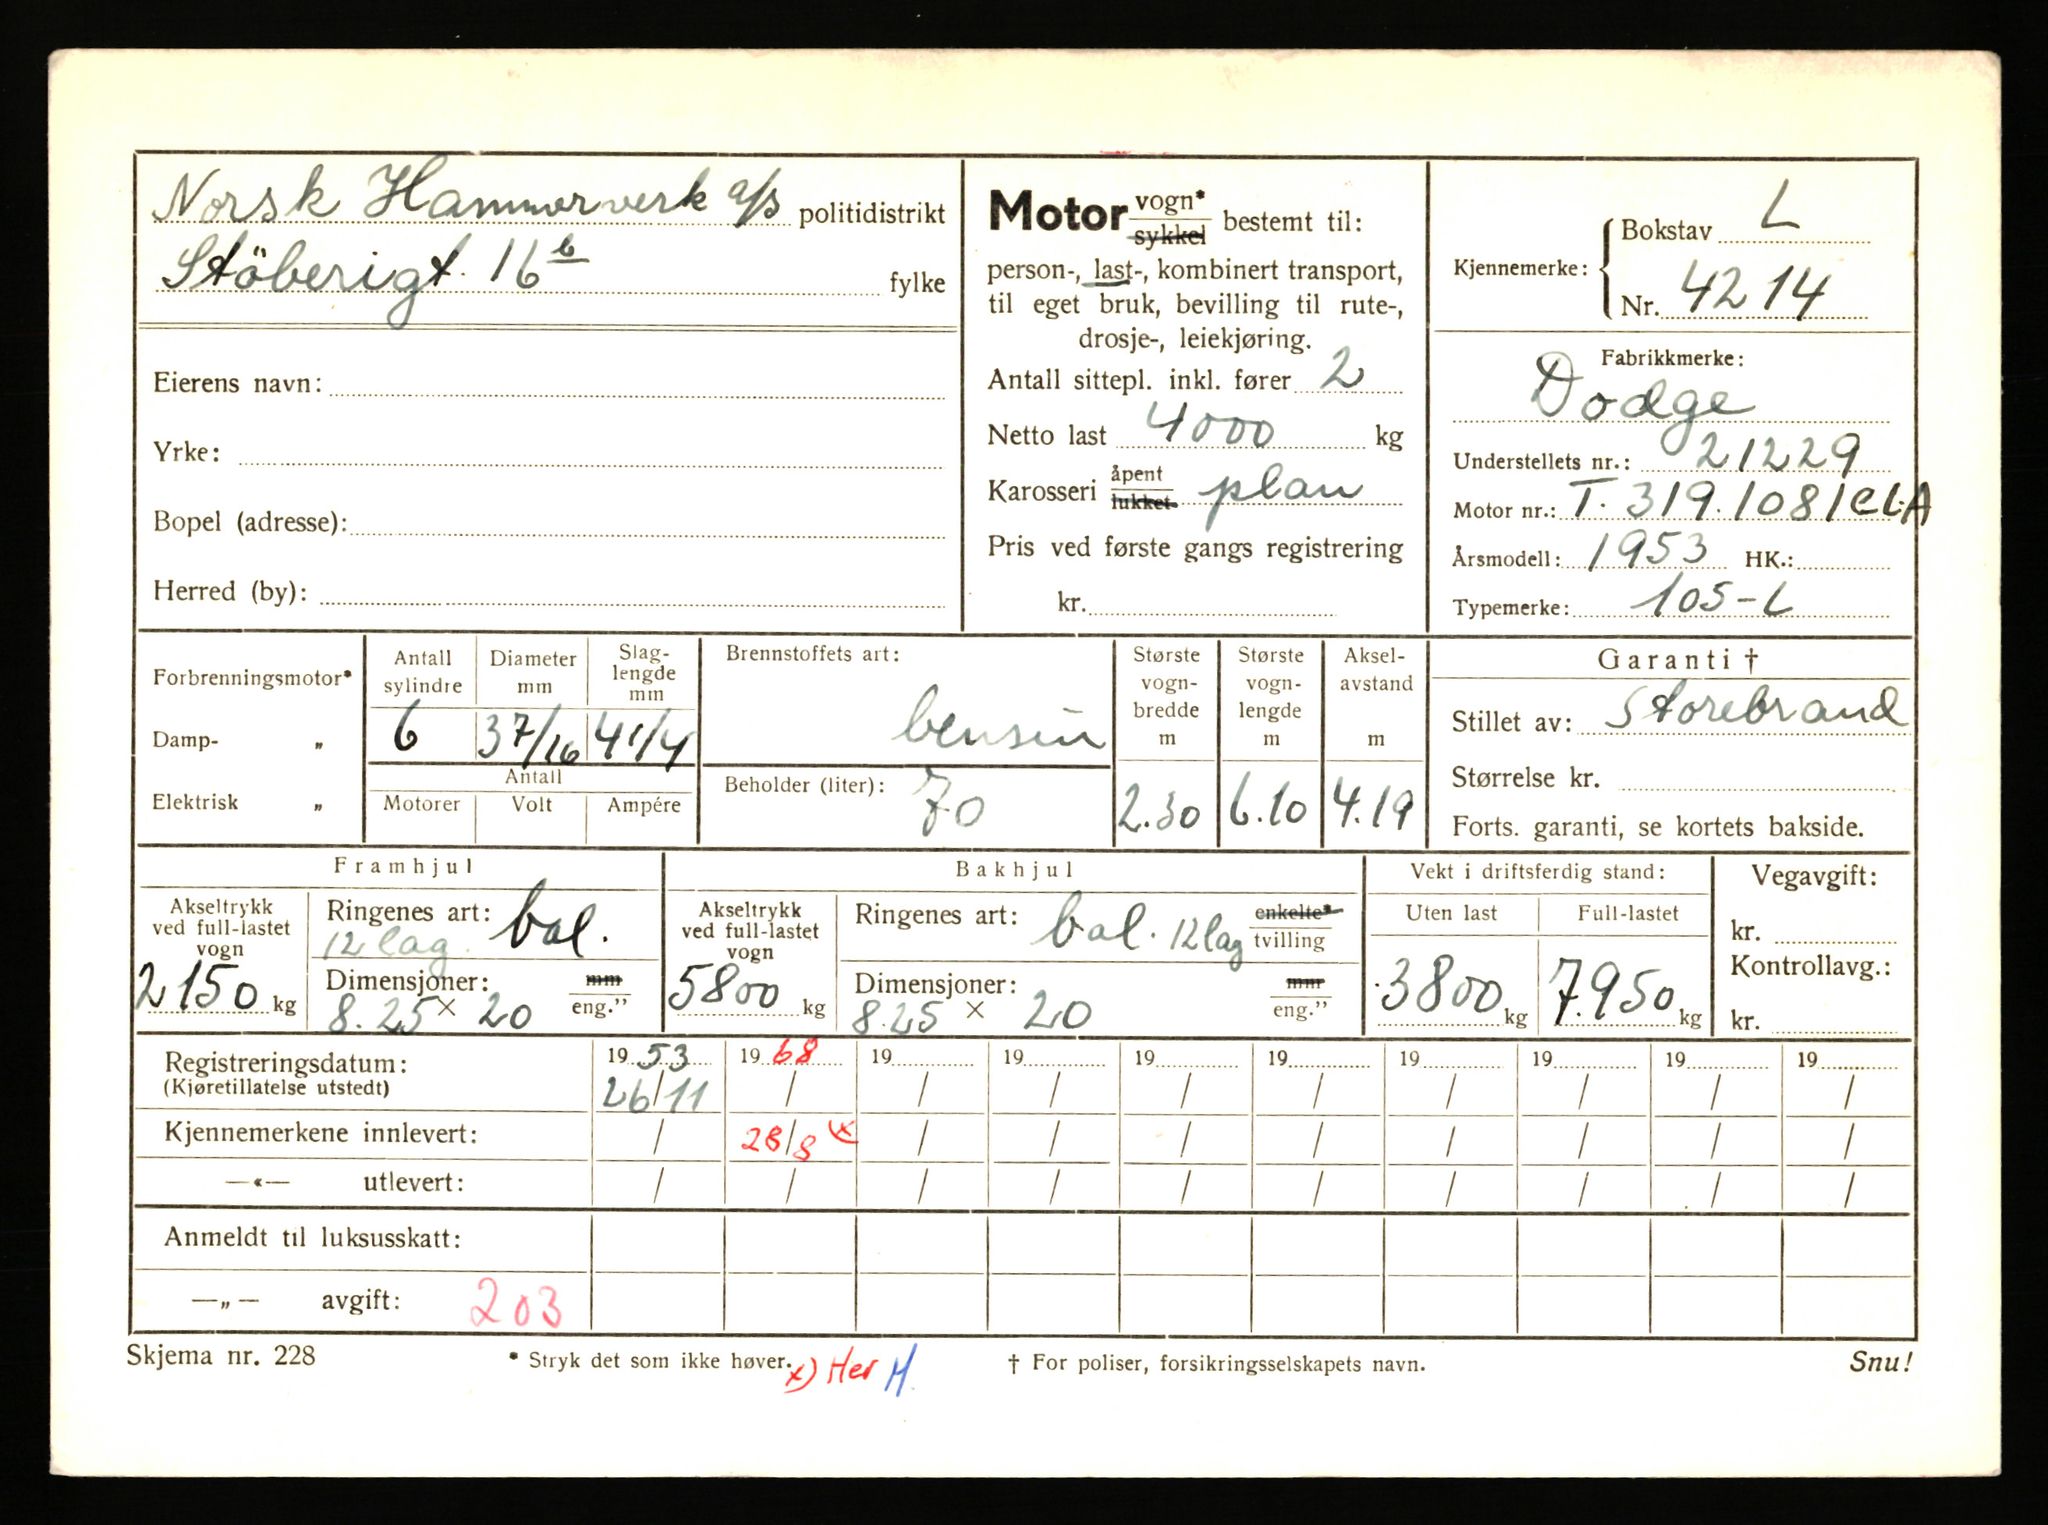 Norsk Hammerverk a/s politidistrikt
Stöberigt. 16 b fylke
Eierens navn:
Yrke:
Bopel (adresse):
Herred (by):
Motor vogn* sykkel bestemt til:
person-, last-, kombinert transport,
til eget bruk, bevilling til rute-,
drosje-, leiekjøring.
Antall sittepl. inkl. fører 2
Netto last 4000 kg
Karosseri åpent lukket plan
Pris ved første gangs registrering
kr.
Kjennemerke: Bokstav L
Nr. 4214
Fabrikkmerke:
Dodge
Understellets nr.: 21229
Motor nr.: T. 319.1081CLA
Årsmodell: 1953 HK.:
Typemerke: 105-L
Forbrenningsmotor*
Damp- „
Elektrisk „
Antall sylindre
Diameter mm
Slag-lengde mm
6 37/16 41/4
Antall
Motorer Volt Ampére
Brennstoffets art:
bensin
Beholder (liter): 70
Største vogn-bredde m
2.30
Største vogn-lengde m
6.10
Aksel-avstand m
4.19
Garanti †
Stillet av: Storebrand
Størrelse kr.
Forts. garanti, se kortets bakside.
Framhjul
Akseltrykk ved full-lastet vogn
2150 kg
Ringenes art: bal.
12 lag.
Dimensjoner: mm
8.25 × 20 eng.”
Bakhjul
Akseltrykk ved full-lastet vogn
5800 kg
Ringenes art: bal. 12 lag enkelte* tvilling
Dimensjoner: mm
8.25 × 20 eng.”
Vekt i driftsferdig stand:
Uten last Full-lastet
3800 kg 7.950 kg
Vegavgift:
kr.
Kontrollavg.:
kr.
Registreringsdatum: 19 53 19 68 19 19 19 19 19 19 19 19
(Kjøretillatelse utstedt) 26/11 / / / / / / / / /
Kjennemerkene innlevert: / 28/8 x) / / / / / / / /
—«— utlevert: / / / / / / / / / /
Anmeldt til luksusskatt:
—„— avgift: 203
Skjema nr. 228 * Stryk det som ikke høver. x) Her H † For poliser, forsikringsselskapets navn. Snu!